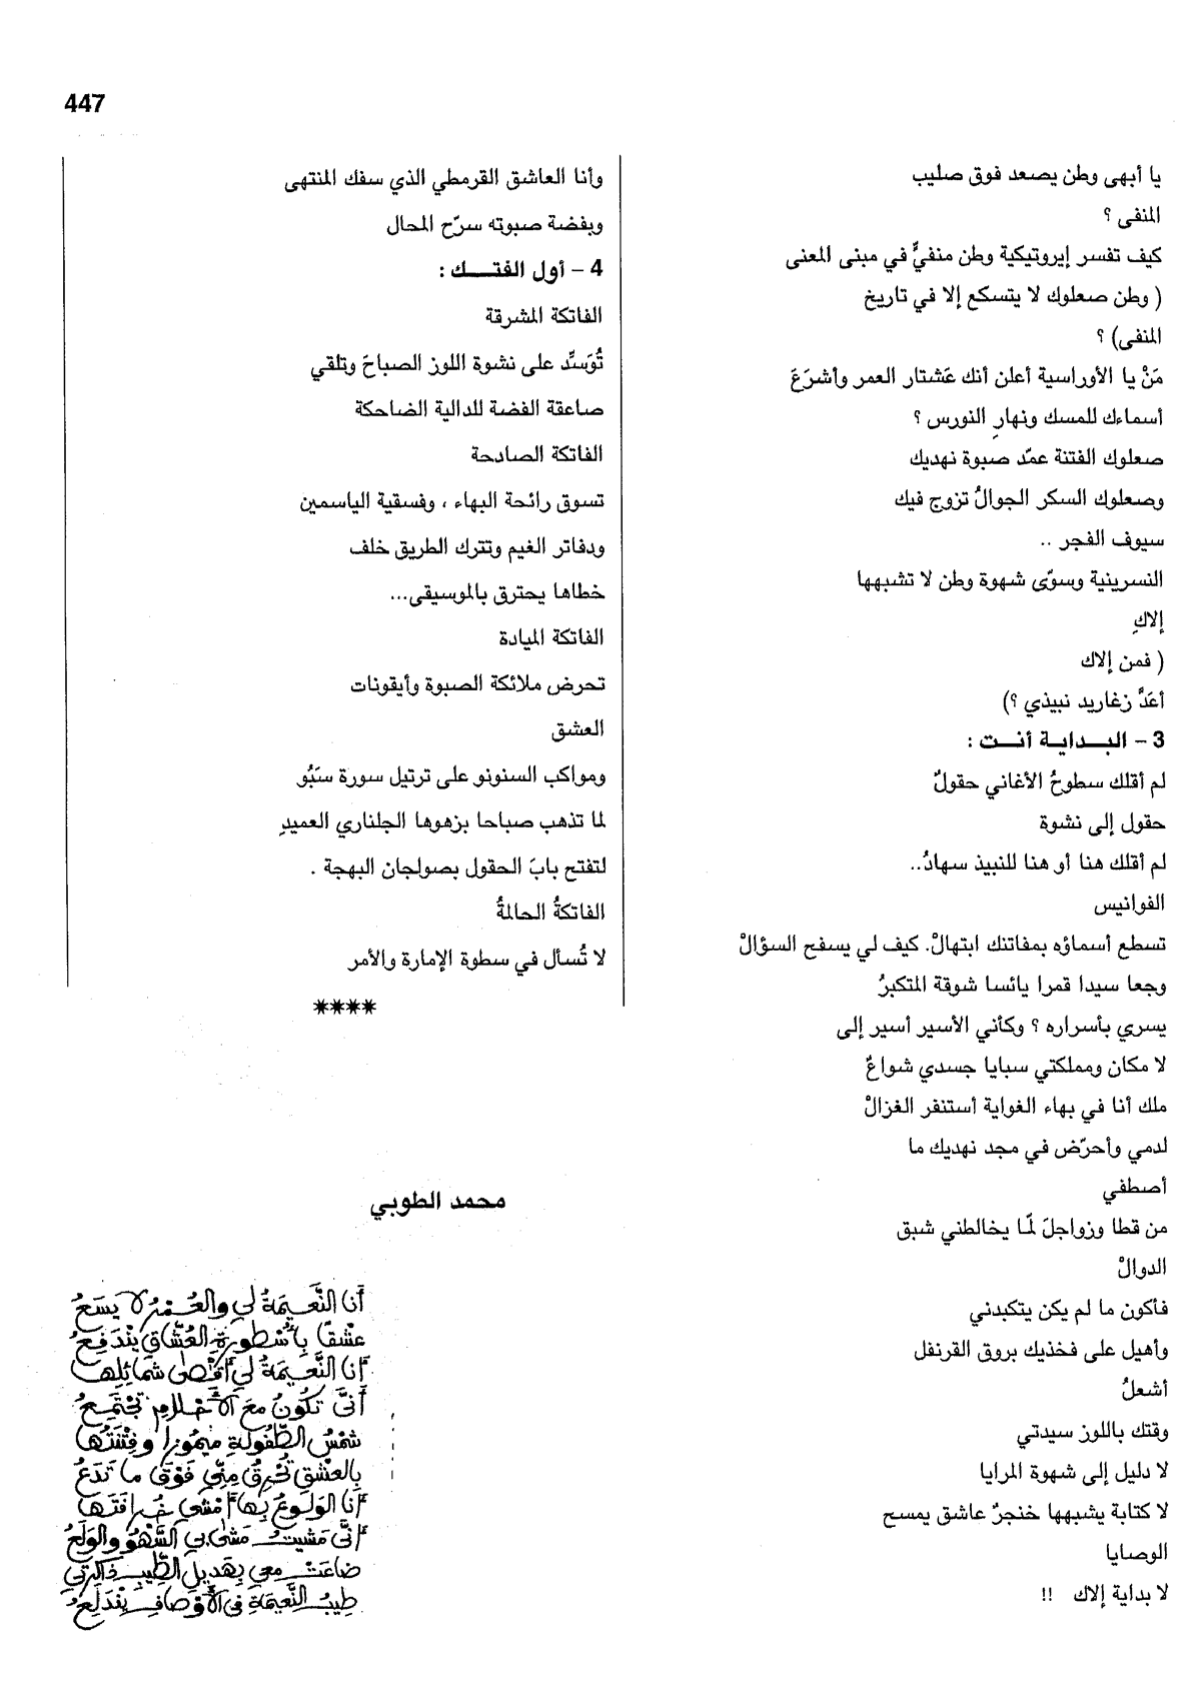 447
يا أبهى وطن يصعد فوق صليب
المنفى ؟
كيف تفسر إيروتيكية وطن منفيٍّ في مبنى المعنى
( وطن صعلوك لا يتسكع إلا في تاريخ
المنفى) ؟
مَنْ يا الأوراسية أعلن أنك عَشتار العمر وأشرَعَ
أسماءك للمسك ونهارِ النورس ؟
صعلوك الفتنة عمّد صبوة نهديك
وصعلوك السكر الجوالُ تزوج فيك
سيوف الفجر ..
النسرينية وسوّى شهوة وطن لا تشبهها
إلاكِ
( فمن إلاك
أعَدَّ زغاريد نبيذي ؟)
3 – البـــدايـة أنـــت :
لم أقلك سطوحُ الأغاني حقولٌ
حقول إلى نشوة
لم أقلك هنا أو هنا للنبيذ سهادُ..
الفوانيس
تسطع أسماؤه بمفاتنك ابتهالْ. كيف لي يسفح السؤالْ
وجعا سيدا قمرا يائسا شوقة المتكبرُ
يسري بأسراره ؟ وكأني الأسير أسير إلى
لا مكان ومملكتي سبايا جسدي شواعٌ
ملك أنا في بهاء الغواية أستنفر الغزالْ
لدمي وأحرّض في مجد نهديك ما
أصطفي
من قطا وزواجلَ لمّا يخالطني شبق
الدوالْ
فأكون ما لم يكن يتكبدني
وأهيل على فخذيك بروق القرنفل
أشعلُ
وقتك باللوز سيدتي
لا دليل إلى شهوة المرايا
لا كتابة يشبهها خنجرٌ عاشق يمسح
الوصايا
لا بداية إلاك !!
وأنا العاشق القرمطي الذي سفك المنتهى
وبفضة صبوته سرّح المحال
4 – أول الفتـــــك :
الفاتكة المشرقة
تُوَسِّد على نشوة اللوز الصباحَ وتلقي
صاعقة الفضة للدالية الضاحكة
الفاتكة الصادحة
تسوق رائحة البهاء ، وفسقية الياسمين
ودفاتر الغيم وتترك الطريق خلف
خطاها يحترق بالموسيقى...
الفاتكة الميادة
تحرض ملائكة الصبوة وأيقونات
العشق
ومواكب السنونو على ترتيل سورة سَبُو
لما تذهب صباحا بزهوها الجلناري العميدِ
لتفتح بابَ الحقول بصولجان البهجة .
الفاتكةُ الحالمةُ
لا تُسأل في سطوة الإمارة والأمر
****
محمد الطوبي
أَنا النَّعِيمَةُ لي والعُمْرُ لا يسَعُ
عشْقًا بِأُسْطورَةِ العُشّاقِ يَنْدَفِعُ
أَنا النَّعيمَةُ لي أَقْصى شمَائِلِها
أَنّى تكُونُ معَ الأَحْلامِ تجْتَمِعُ
شمْسُ الطُّفُولةِ وفِتْنَتُها
بِالعشْقِ تُحْرِقُ مِنّي فَوْقَ ما تَدَعُ
أَنا الوَلُوعُ بِها أَمْشي خُرافَتَها
أَنّى مَشيتُ مَشى بي السَّهْوُ والوَلَعُ
ضاعَتْ معي بِهَديلِ الطِّيبِ ذاكِرَتي
طِيبُ النَّعِيمَةِ في الأَوْصافِ يَنْدَلِعُ